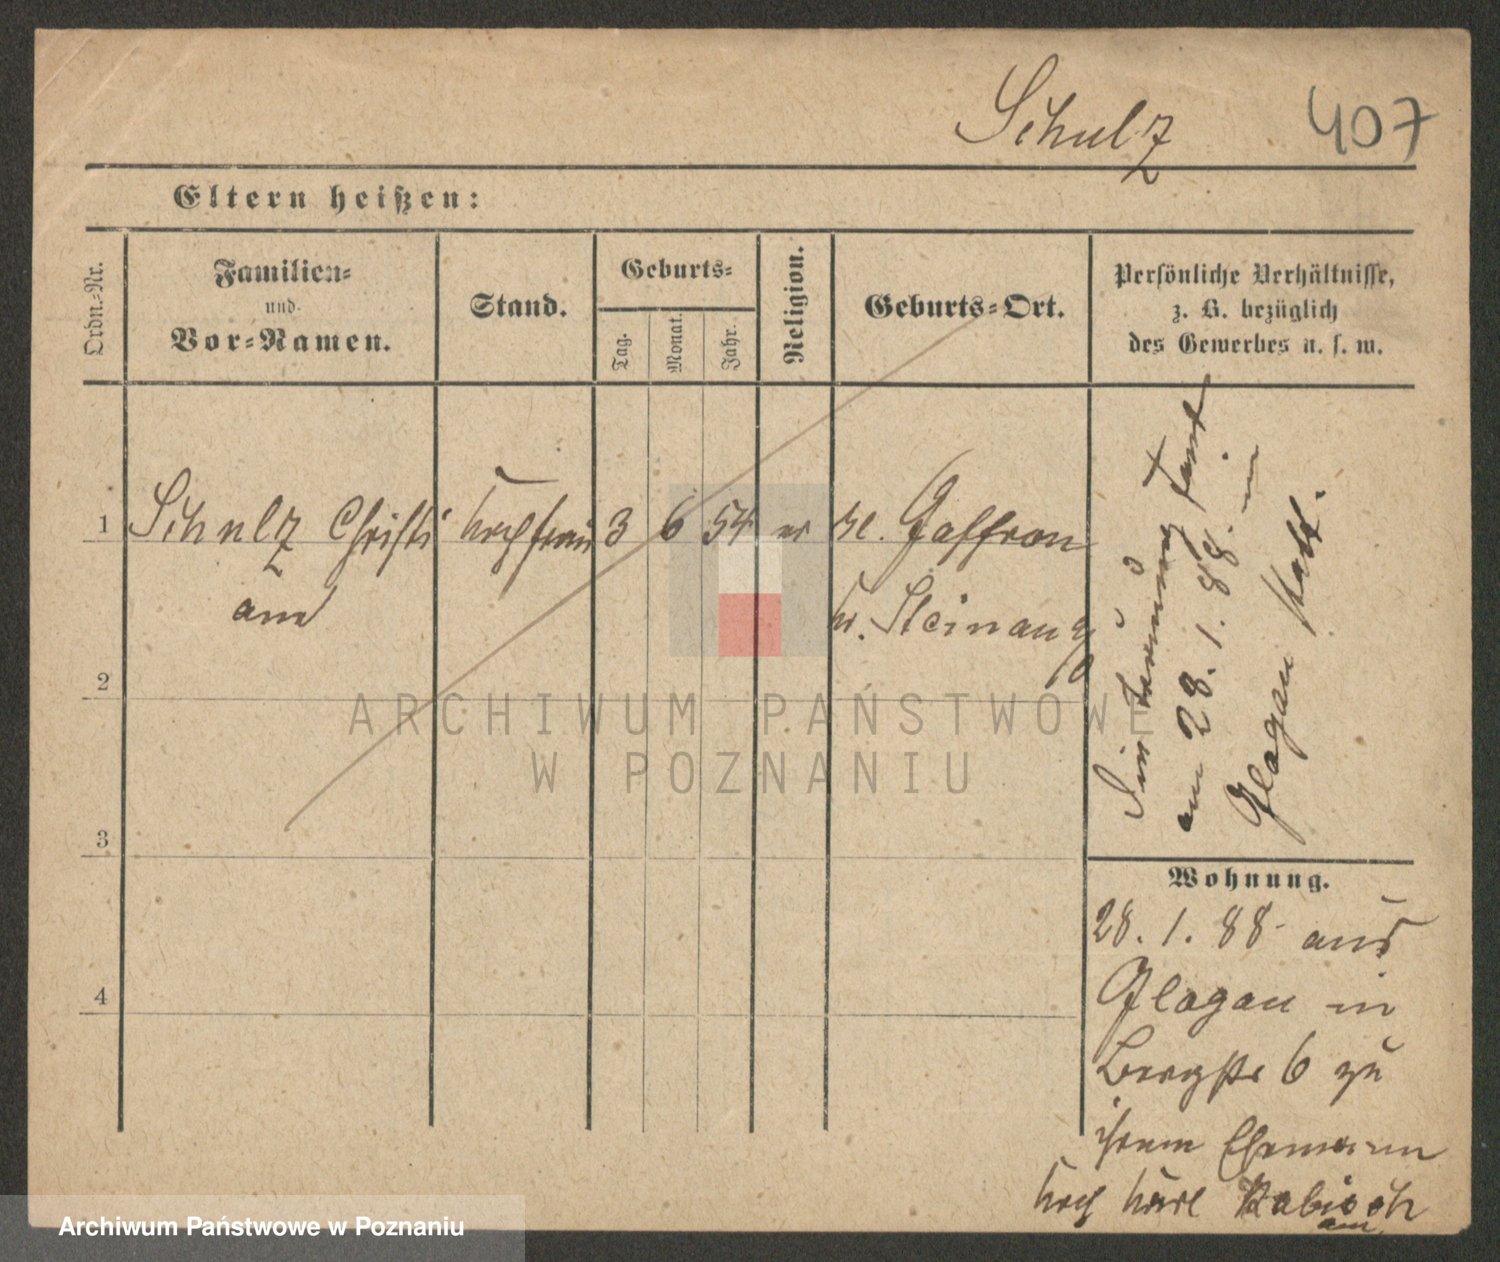 Schulz 407
Eltern heißen:
Ordn.=Nr.
Familien=
und
Vor=Namen.
Stand.
Geburts=
Tag.
Monat.
Jahr.
Religion.
Geburts=Ort.
Persönliche Verhältnisse,
z. B. bezüglich
des Gewerbes u. s. w.
1 Schulz Christi Kochfrau 3 6 54 ev Kl. Gaffron
and
Kr. Steinau
2
3
4
am 28. 1. 88. in
Glogau statt.
Wohnung.
28. 1. 88 aus
Glogau in
Bergstr 6 zu
ihrem Ehemann
Koch Karl
ARCHIWUM PAŃSTWOWE
W POZNANIU
Archiwum Państwowe w Poznaniu